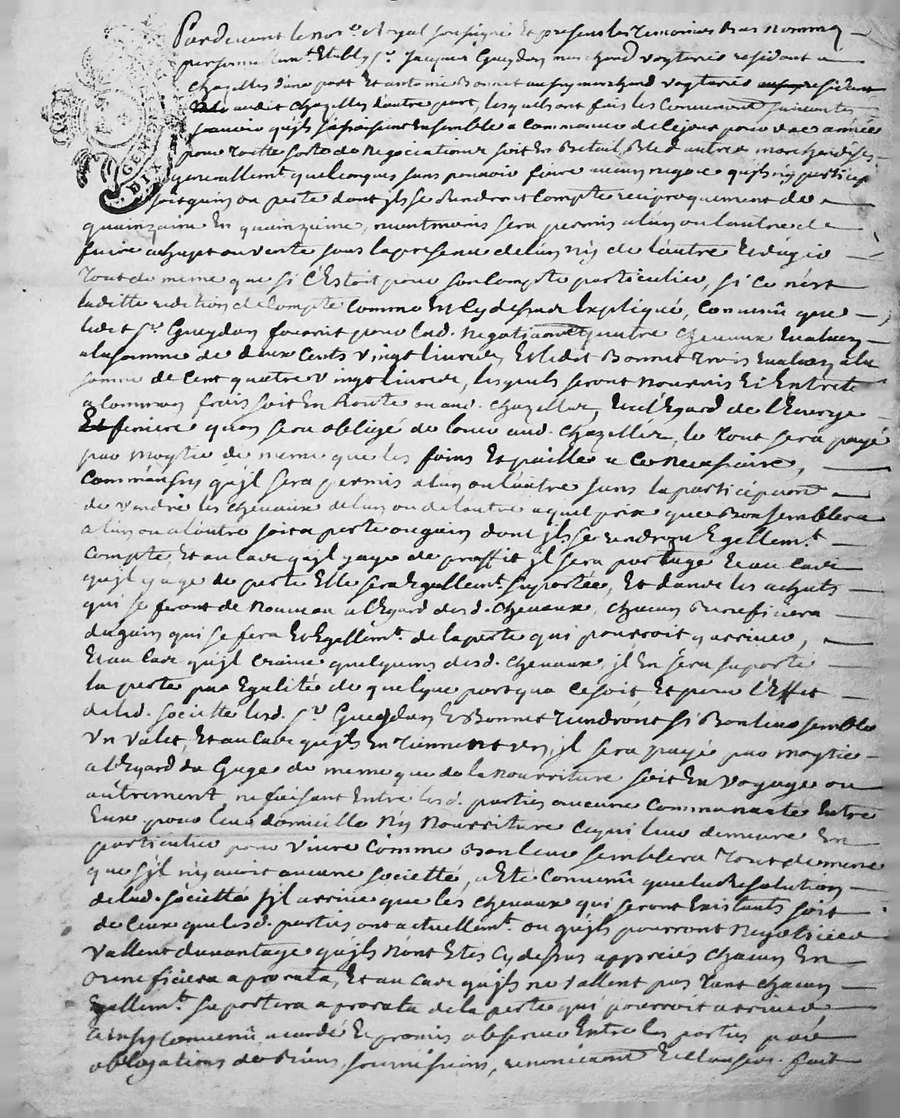 GEN
DIX
Pardevant le nore Royal soussigné Et presents les temoins bas nommés
personnellemt Etably sr. Jacques Gueydan marchand voyturié residant a
chazelles d'une part Et antoine Bonnet aussy marchand voyturié residant
audit chazelles d'autre part, lesquels ont fait les Conventions suivantes
scavoir qu'jls s'associent Ensemble a Commancer de cejour pour une année
pour toutte sorte de Negociation soit En Betail Bled autres marchandises
generallemt quelconques sans pouvoir faire aucun negoce qu'jls n'y participent
soit gain ou perte dont jls se Rendront Compte reciproquement de
quainzaine En quainzaine, neantmoins sera permis a l'un ou l'autre de
faire achapt ou vente sans la presence de l'un n'y de l'autre
tout de meme que si c'Estoit pour son Compte particulier, si ce n'est
laditte redition de Compte Comme Est Cy dessus Expliqué, Convenû que
ledit sr. Gueydan fournit pour lad. Negotiation quatre chevaux Evalués
a la somme de deux Cents vingt livres, Et ledit Bonnet trois Evalués a la
somme de Cent quatre vingt livres, lesquels seront nourris Et Entretenus
a Commun frais soit En Route ou aud. chazelles, Et a l'Egard de l'Ecurye
Et feniere quon sera obligé de louer aud. chazelles, le tout sera payé
par moytié de meme que les foins Et paille a ce necessaire,
Convenû qu'jl sera permis a l'un ou l'autre sans la participation
de vendre les chevaux de l'un ou de l'autre a quel prix que Bon semblera
a l'un ou a l'autre soit a perte ou gain dont jls se rendront Egallemt
Compte, Et au Cas qu'jl y aye de proffit jl sera partagé Et au Cas
qu'jl y aye de perte Elle sera Egallemt suportée, Et dans les achapts
qui se feront de nouveau a l'Egard desd. chevaux, chacun Beneficiera
du gain qui se fera Et Egallemt de la perte qui pourroit y arriver,
Et au Cas qu'jl creve quelquuns desd. chevaux, jl En sera suporté
la perte par Egalité de quelque part que ce soit, Et pour l'Effet
de lad. societté lesd. sr. Gueydan Et Bonnet tiendront si Bon leur semble
Un Valet, Et au Cas qu'jls En tiennent un, jl sera payé par moytié
a l'Egard du Gage de meme que de la Nourriture soit En Voyage ou
autrement ne faisant Entre lesd. parties aucune Communauté Entre
Eux pour leur domicille N'y Nourriture ce qui leur demeure En
particulier pour vivre Comme Bon leur semblera tout de meme
que s'jl n'y avoit aucune societté, a Eté Convenû qu'a la Resolution
de lad. societté s'jl arrive que les chevaux qui seront Existants soit
de Ceux que lesd. parties ont actuellemt ou qu'jls pourront Negotier
vallent davantage qu'jls n'ont Etes Cy dessus appreciés chacun En
Beneficiera a prorata, Et au Cas qu'jls ne vallent pas tant chacun
Egallemt suportera a prorata de la perte qui pourroit arriver
Et ainsy Convenû acordé Et promis observer Entre les parties par
obligations de Biens, soumissions, renonciations Et Clauses. fait